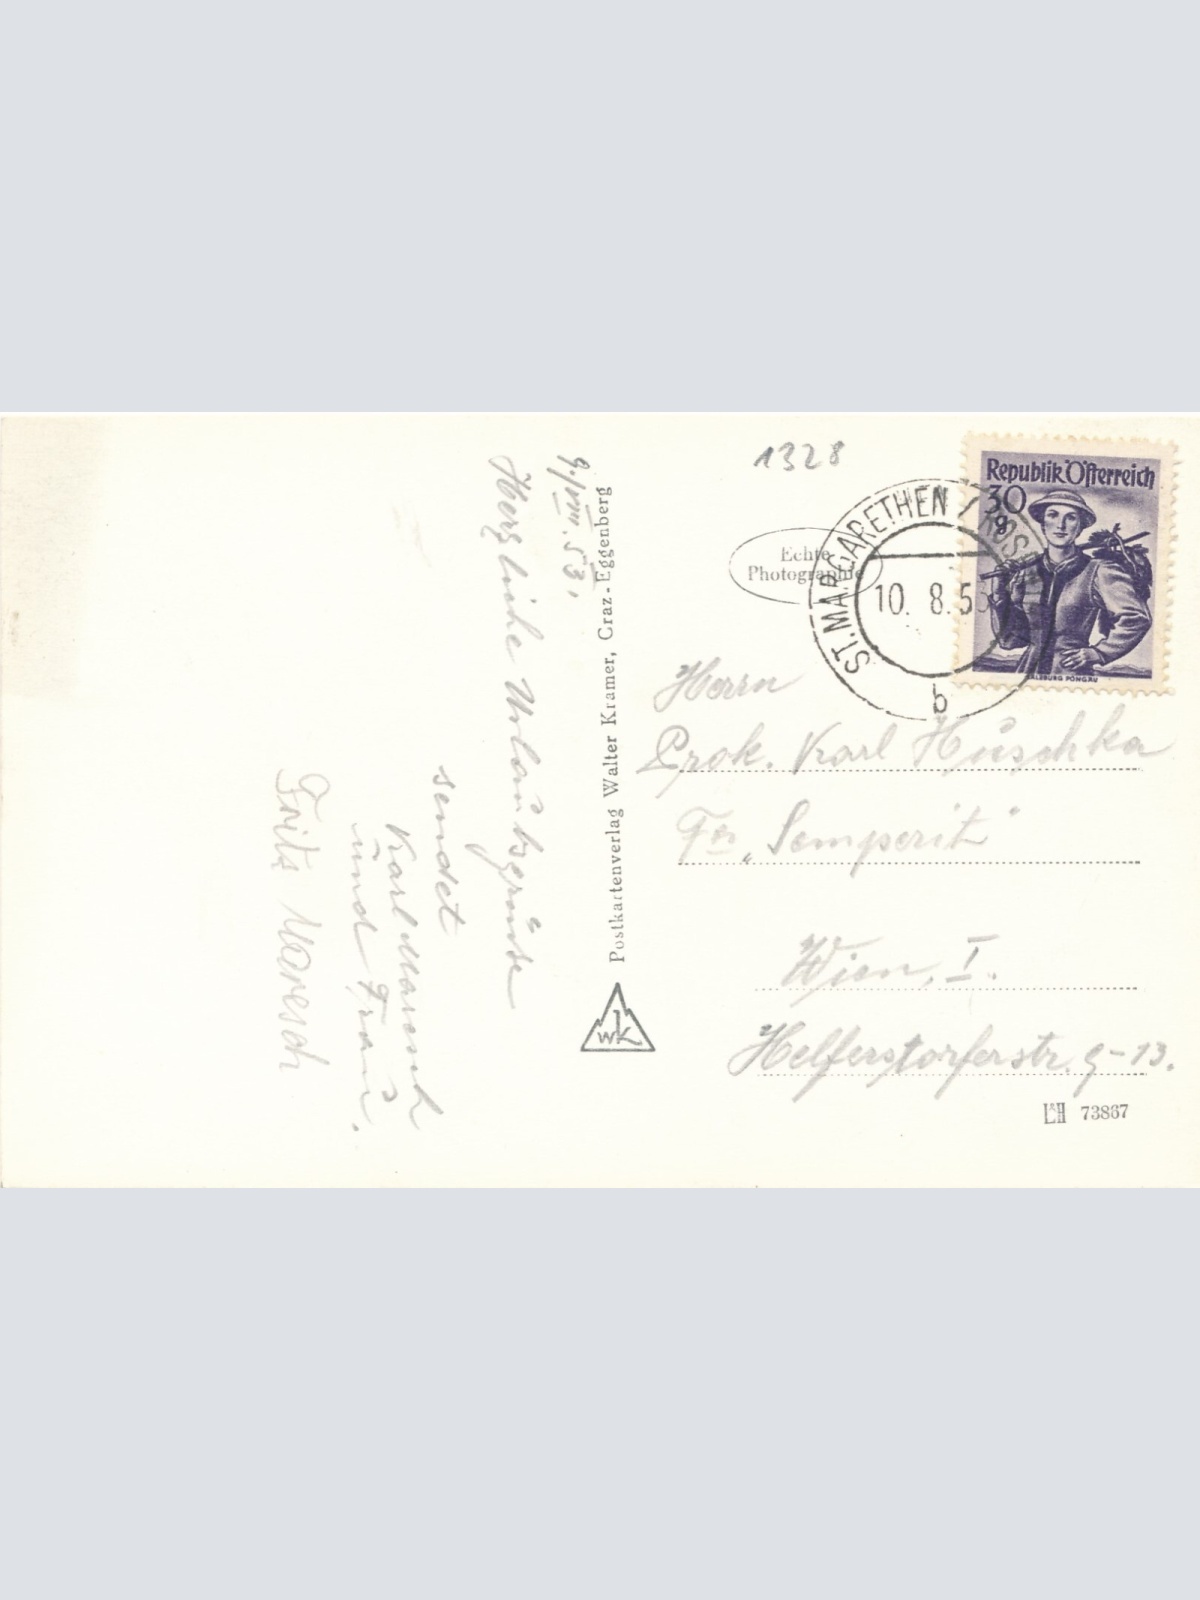 9./VIII.53.
Herzliche Urlaubsgrüsse
sendet
Karl Maresch
und Frau.
Fritz Maresch
Postkartenverlag Walter Kramer, Graz-Eggenberg
WK
1328
Echte
Photographie
Republik Österreich
30
g
SALZBURG PONGAU
ST. MARGARETHEN / ROSEN
10. 8. 5
b
Herrn
Prok. Karl Huschka
Fa „Semperit“
Wien, I.
Helferstorferstr. 9-13.
L&H 73867